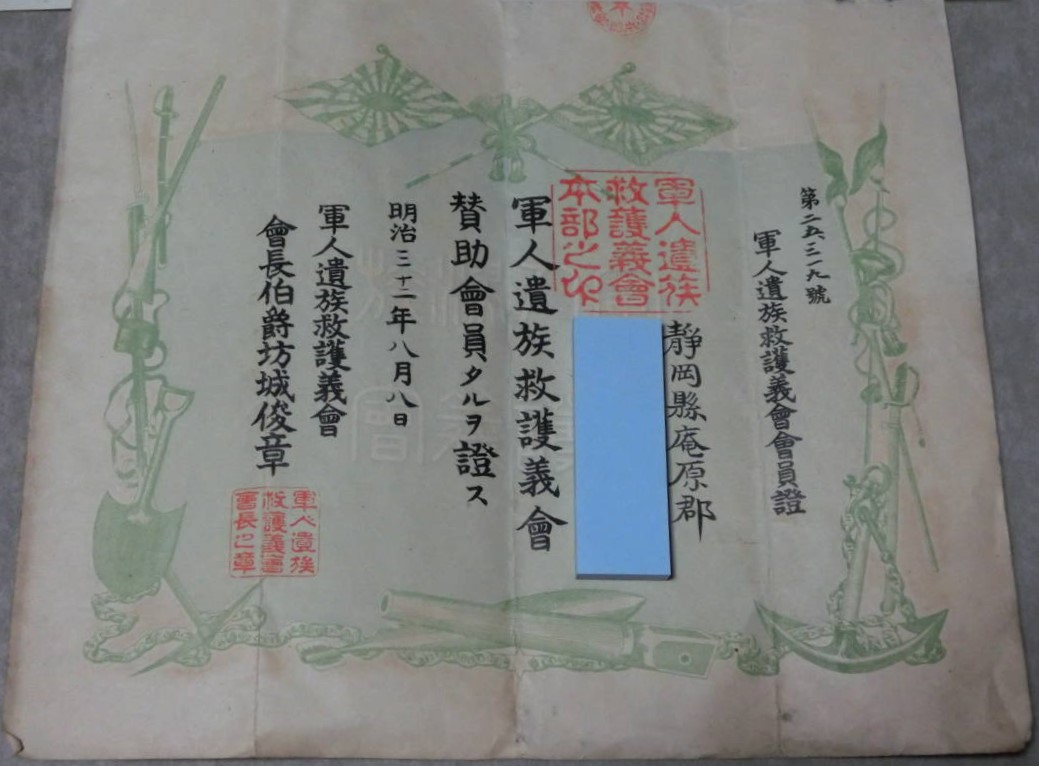 第二五、三一九號
軍人遺族救護義會會員證
靜岡縣庵原郡
軍人遺族
救護義會
本部之印
軍人遺族救護義會
賛助會員タルヲ證ス
明治三十一年八月八日
軍人遺族救護義會
會長伯爵坊城俊章
軍人遺族
救護義會
會長之章